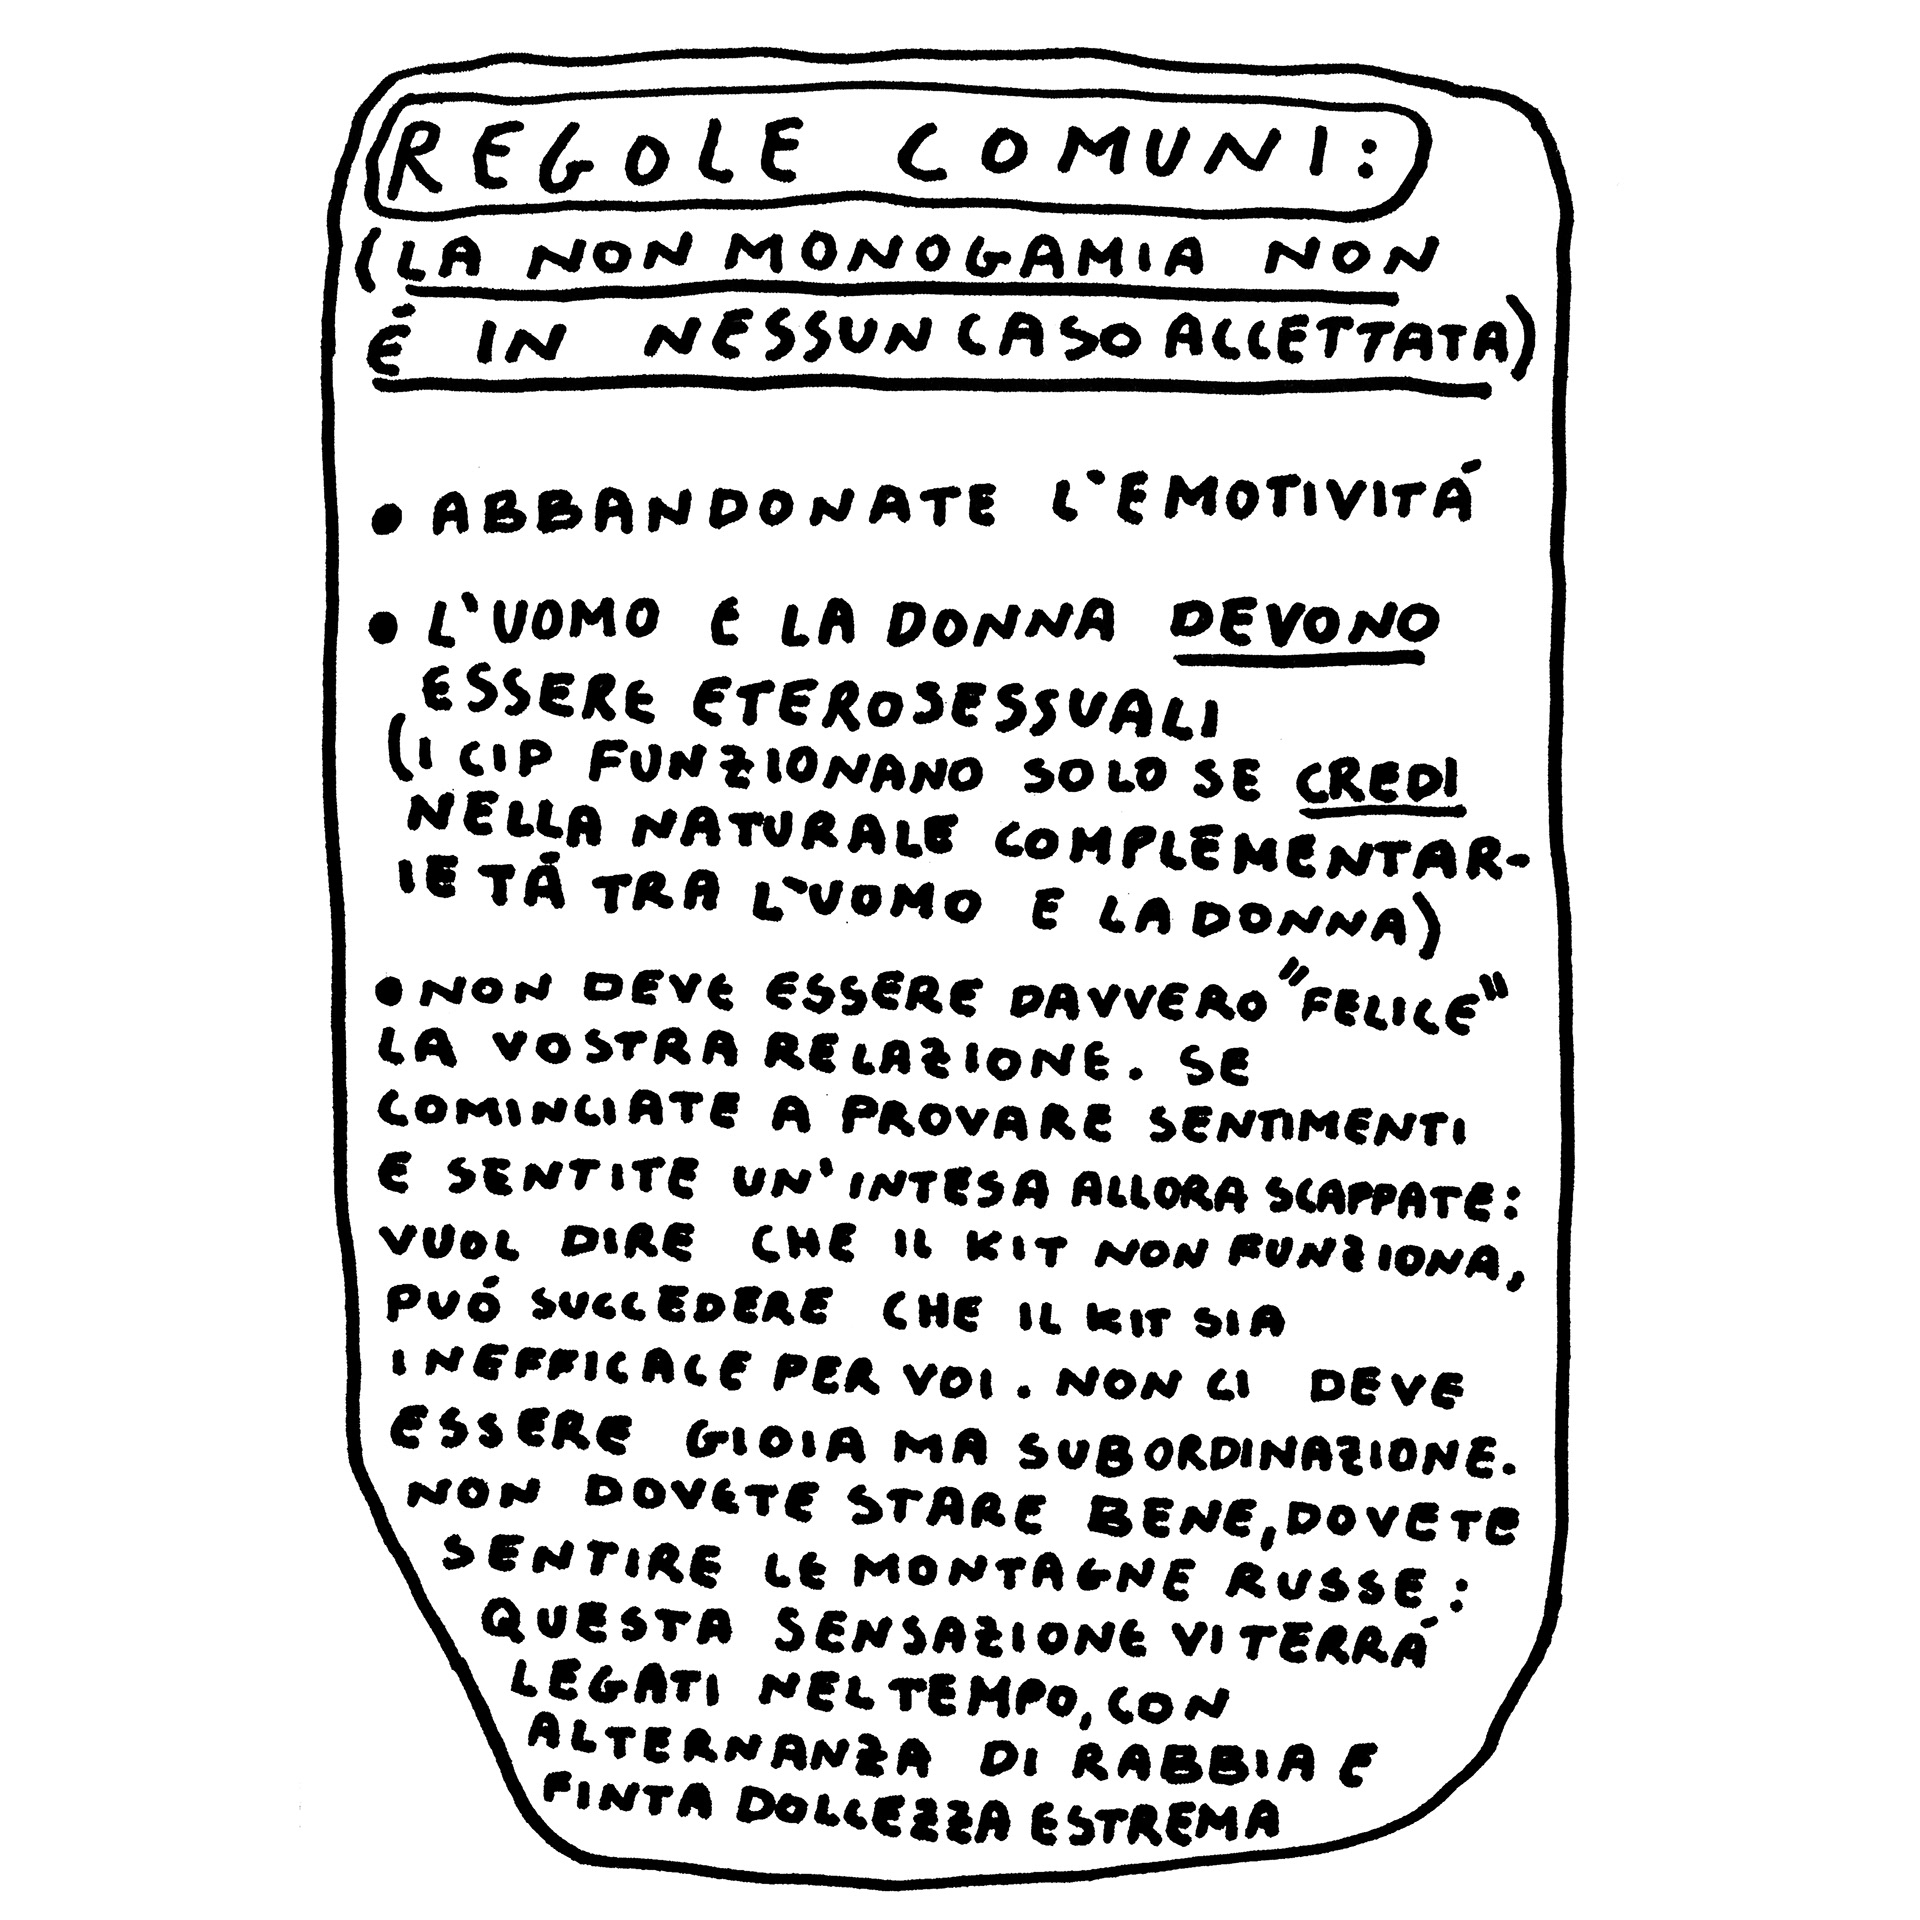 REGOLE COMUNI:
(LA NON MONOGAMIA NON
É IN NESSUN CASO ACCETTATA)
• ABBANDONATE L'EMOTIVITÁ
• L'UOMO E LA DONNA DEVONO
ESSERE ETEROSESSUALI
(I CIP FUNZIONANO SOLO SE CREDI
NELLA NATURALE COMPLEMENTAR-
IETÁ TRA L'UOMO E LA DONNA)
• NON DEVE ESSERE DAVVERO "FELICE"
LA VOSTRA RELAZIONE. SE
COMINCIATE A PROVARE SENTIMENTI
E SENTITE UN'INTESA ALLORA SCAPPATE:
VUOL DIRE CHE IL KIT NON FUNZIONA,
PUÓ SUCCEDERE CHE IL KIT SIA
INEFFICACE PER VOI. NON CI DEVE
ESSERE GIOIA MA SUBORDINAZIONE.
NON DOVETE STARE BENE, DOVETE
SENTIRE LE MONTAGNE RUSSE:
QUESTA SENSAZIONE VI TERRÁ
LEGATI NEL TEMPO, CON
ALTERNANZA DI RABBIA E
FINTA DOLCEZZA ESTREMA